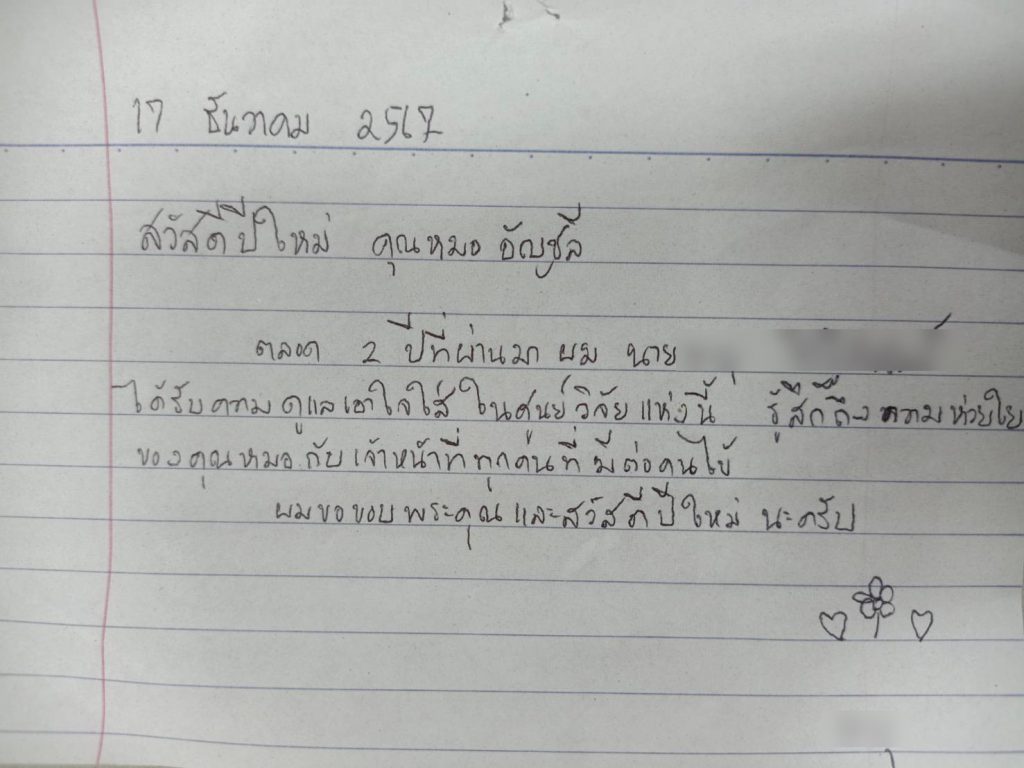 17 ธันวาคม 2567
สวัสดีปีใหม่ คุณหมอ อัญชลี
ตลอด 2 ปีที่ผ่านมา ผม นาย
ได้รับความดูแลเอาใจใส่ ในศูนย์วิจัยแห่งนี้ รู้สึกถึงความห่วงใย
ของคุณหมอ กับ เจ้าหน้าที่ทุกคนที่ มีต่อคนไข้
ผมขอขอบพระคุณ และสวัสดีปีใหม่ นะครับ